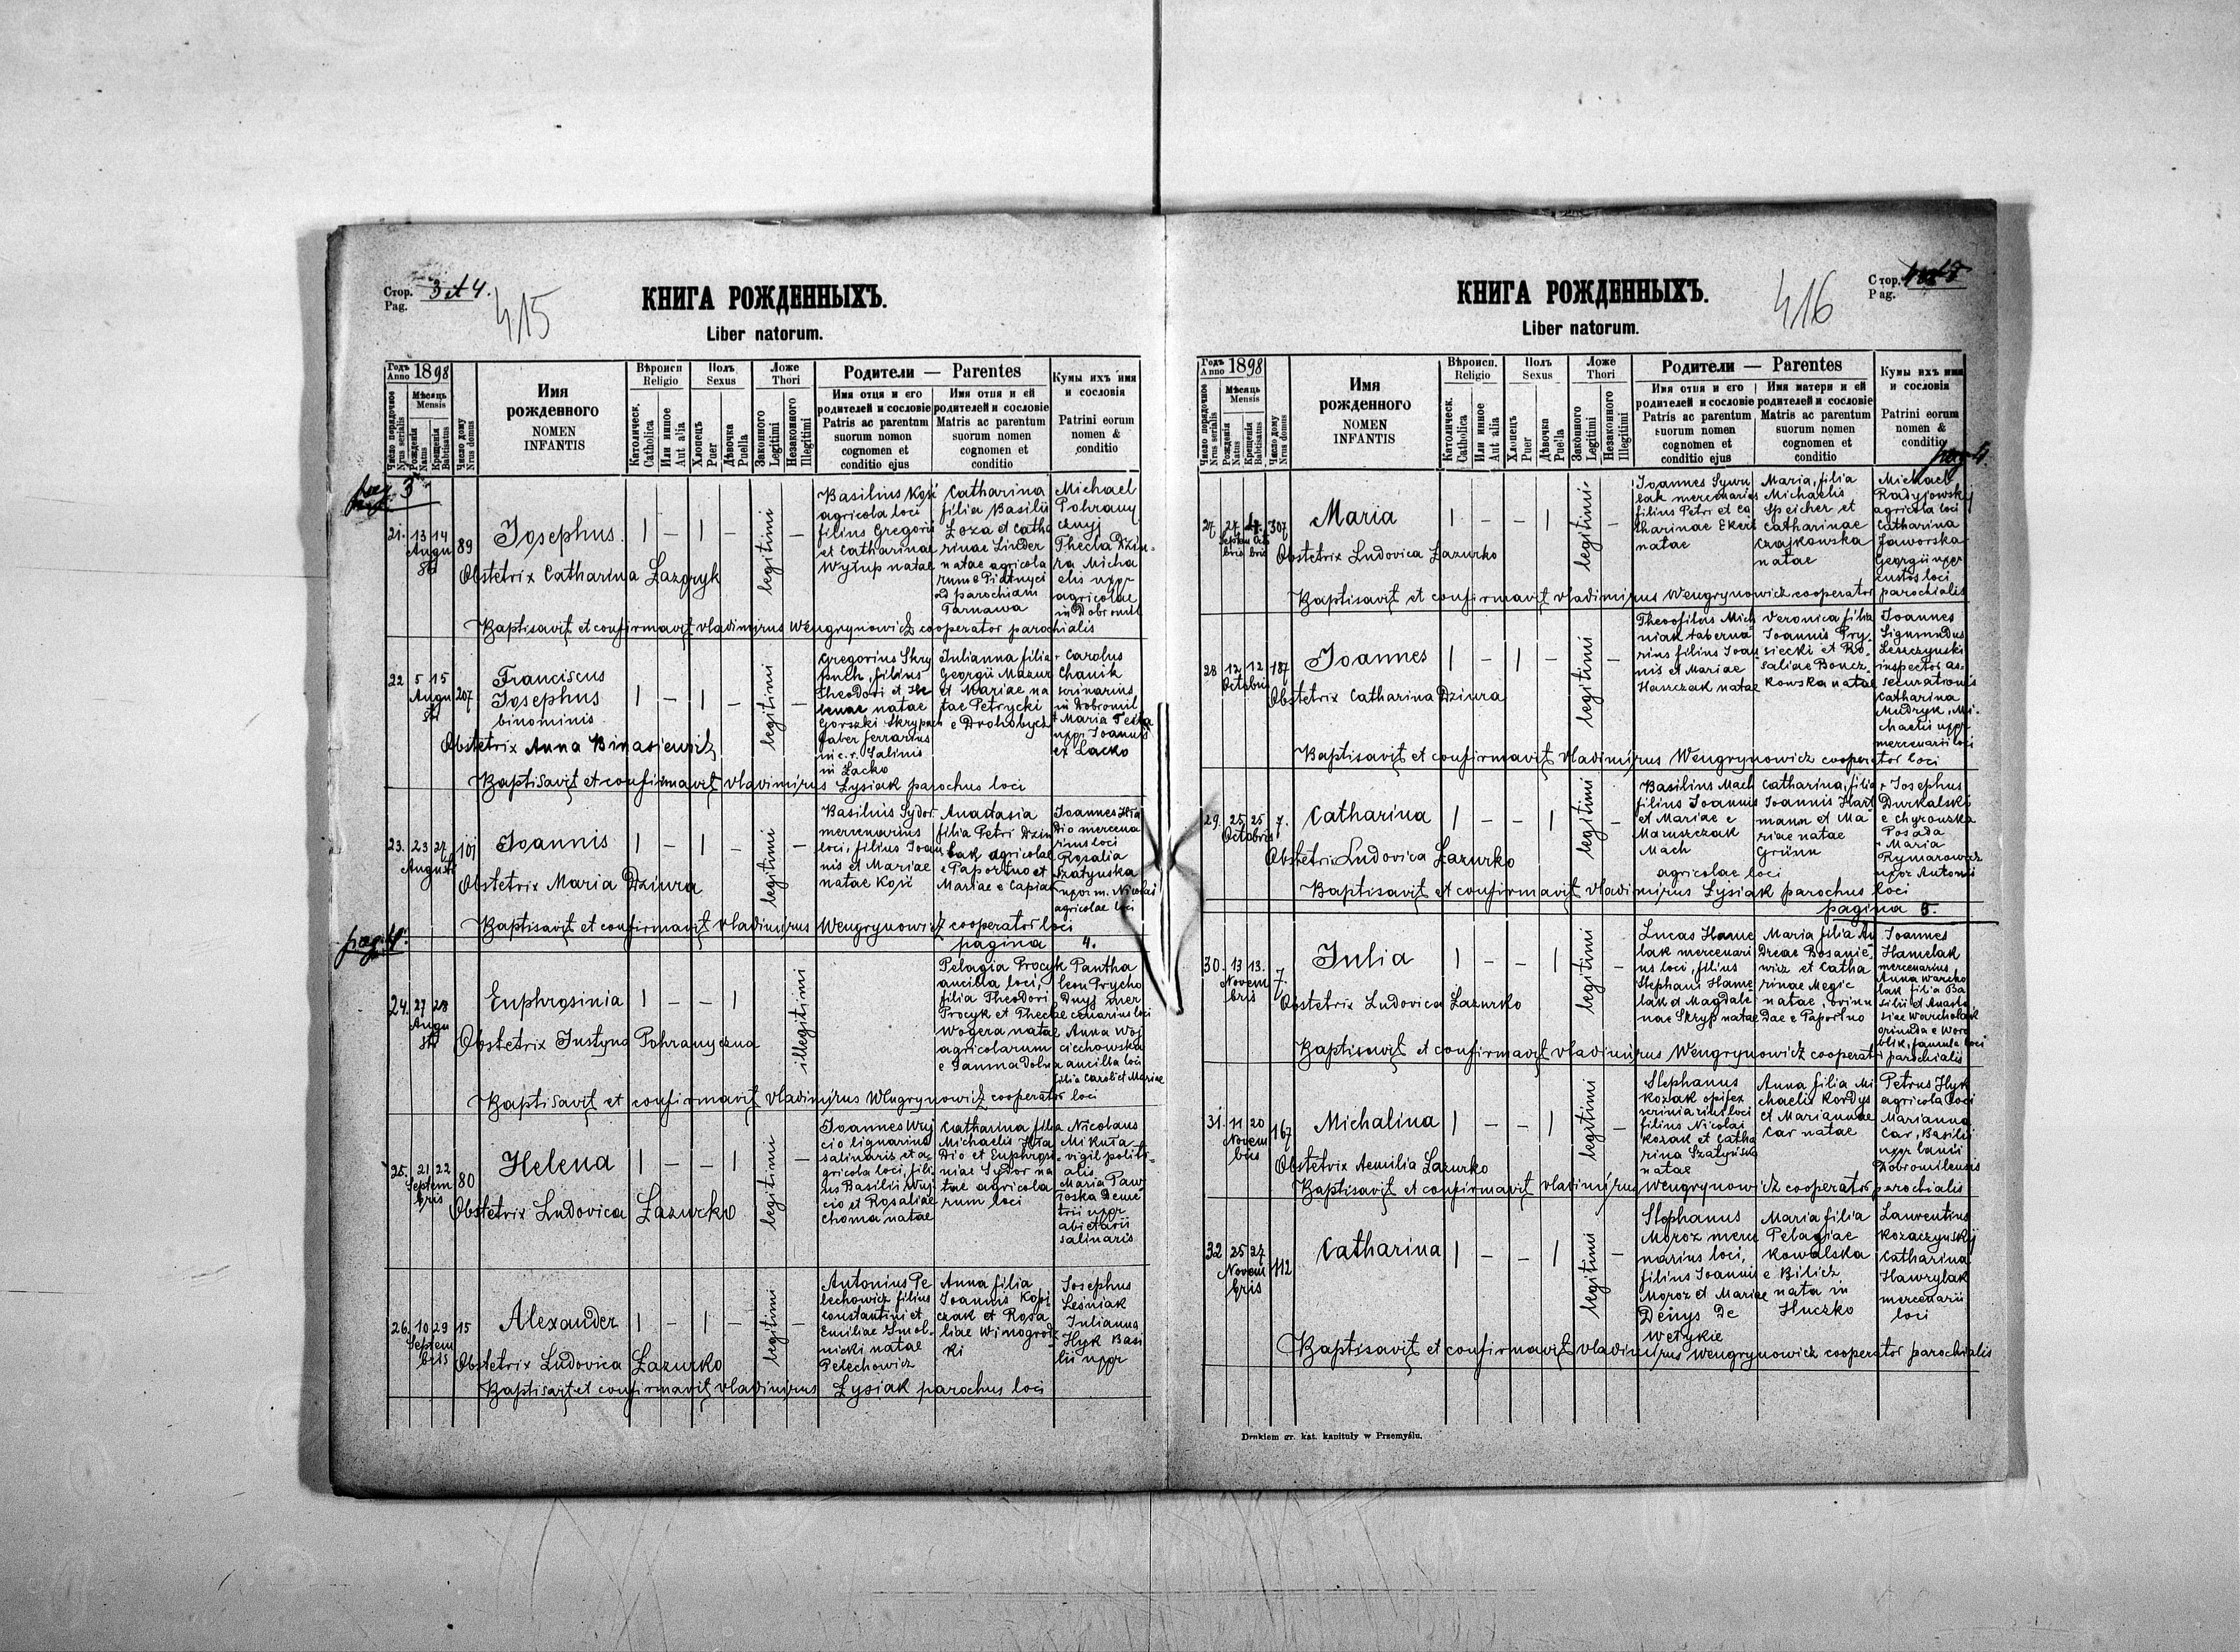 Стор. 3 et 4.
Pag.
415
КНИГА РОЖДЕННЫХЪ.
Liber natorum.
Годъ Anno 1898
Мѣсяць Mensis
Число порядочное Nrus serialis
Рожденія Natus
Крещенія Babtisatus
Число дому Nrus domus
Имя рожденного
NOMEN INFANTIS
Вѣроисп Religio
Католическ. Catholica
Или инное Aut alia
Полъ Sexus
Хлопецъ Puer
Дѣвочка Puella
Ложе Thori
Законного Legitimi
Незаконного Illegitimi
Родители — Parentes
Имя отця и его родителей и сословіе
Patris ac parentum suorum nomon cognomen et conditio ejus
Имя отця и ей родителей и сословіе
Matris ac parentum suorum nomen cognomen et conditio
Кумы ихъ имя и сословія
Patrini eorum nomen & conditio
pag. 3
21. 13 14 Augusti 89 Josephus. 1 – 1 – legitimi –
Basilius Kość
agricola loci
filius Gregorii
et Catharinae
Wytup natae
Catharina
filia Basilii
Loza et Catha
rinae Linder
natae agricola
rum e Piatnyci
ad parochiam
Tarnawa
Michael
Pohrany
cznyj
Thecla Dziu-
ra Micha
elis uxor
agricolae
in Dobromil
Obstetrix Catharina Łazoryk
Baptisavit et confirmavit Vladimirus Wengrynowicz cooperator parochialis
22 5 15 Augusti 207 Franciscus
Josephus
binominis
1 – 1 – legitimi –
Gregorius Skry
puch, filius
Theodori et He
lenae natae
Gorszki Skrypuch
faber ferrarius
in c. r. Salinis
in Lacko
Julianna filia
Georgii Mazur
et Mariae na
tae Petrycki
e Drohobycz
+ Carolus
Chanik
scrinarius
in Dobromil
+ Maria
uxor Joannis
ex Lacko
Obstetrix Anna Binasiewicz
Baptisavit et confirmavit Vladimirus Łysiak parochus loci
23. 23 27 Augusti 101 Joannis 1 – 1 – legitimi –
Basilius Sydor
mercenarius
loci, filius Joan
nis et Mariae
natae Kość
Anastasia
filia Petri Dziu
bak agricolae
e Paportno et
Mariae e Capiak
Joannes Hła
Dio mercena
rius loci
Rosalia
Szatyńska
uxor m. Nicolai
agricolae loci
Obstetrix Maria Dziura
Baptisavit et confirmavit Vladimirus Wengrynowicz cooperator loci
pag. 4.
pagina 4.
24. 27 28 Augusti Euphrosinia 1 – – 1 illegitimi
Pelagia Procyk
ancilla loci,
filia Theodori
Procyk et Theclae
Wogera natae
agricolarum
e Jamna Dolna
Pantha
leon Prycho
Dnyj mer
cenarius loci
Anna Woj
ciechowska
ancilla loci
filia Caroli et Mariae
Obstetrix Justyna Pohranyczna
Baptisavit et confirmavit Vladimirus Wengrynowicz cooperator loci
25. 21 22 Septembris 80 Helena 1 – – 1 legitimi –
Joannes Wuj
cio lignarius
salinaris et a-
gricola loci, fili-
us Basilii Wuj
cio et Rosaliae
Choma natae
Catharina filia
Michaelis Hła
Dio et Euphrosi-
niae Sydor na
tae agricola
rum loci
Nicolaus
Mikuła
vigil politi-
alis
Maria Paw
łoska Deme
trii uxor
abietarii
salinaris
Obstetrix Ludovica Łazurko
26. 10 29 Septembris 15 Alexander 1 – 1 – legitimi –
Antonius Pe
lechowicz filius
Constantini et
Emiliae Smol-
nicki natae
Pelechowicz
Anna filia
Joannis Kopi
czak et Rosa
liae Winogrodz
ki
Josephus
Leśniak
Julianna
Hyk Basi
lii uxor
Obstetrix Ludovica Łazurko
Baptisavit et confirmavit Vladimirus Łysiak parochus loci
Стор.
Pag.
416
КНИГА РОЖДЕННЫХЪ.
Liber natorum.
Годъ Anno 1898
Мѣсяць Mensis
Число порядочное Nrus serialis
Рожденія Natus
Крещенія Babtisatus
Число дому Nrus domus
Имя рожденного
NOMEN INFANTIS
Вѣроисп. Religio
Католическ. Catholica
Или инное Aut alia
Полъ Sexus
Хлопецъ Puer
Дѣвочка Puella
Ложе Thori
Законного Legitimi
Незаконного Illegitimi
Родители — Parentes
Имя отця и его родителей и сословіе
Patris ac parentum suorum nomen cognomen et conditio ejus
Имя матери и ей родителей и сословіе
Matris ac parentum suorum nomen cognomen et conditio
Кумы ихъ имя и сословія
Patrini eorum nomen & conditio
pag. 4.
27. 27 Septembris Octobris 307 Maria 1 – – 1 legitimi –
Joannes Sywu
lak mercenarius
filius Petri et Ca
tharinae Ekert
natae
Maria, filia
Michaelis
Speicher et
Catharinae
Czajkowska
natae
Michael
Radyjowskyj
agricola loci
Catharina
Jaworska
Georgii uxor
custos loci
Obstetrix Ludovica Łazurko
Baptisavit et confirmavit Vladimirus Wengrynowicz cooperator parochialis
28 12 12 Octobris 187 Joannes 1 – 1 – legitimi –
Theofilus Mich
niak taberna-
rius filius Joan
nis et Mariae
Harczak natae
Veronica filia
Joannis Pry-
siecki et Ro-
saliae Boncz
kowska natae
Joannes
Sigmundus
Lenczynski
inspector as-
securationis
Catharina
Mudryk, Mi-
chaelis uxor
mercenarii loci
Obstetrix Catharina Dziura
Baptisavit et confirmavit Vladimirus Wengrynowicz cooperator loci
29. 25 25 Octobris 7. Catharina 1 – – 1 legitimi –
Basilius Mach
filius Joannis
et Mariae e
Maruszczak
Mach
Catharina, filia
Joannis Hart
mann et Ma
riae natae
Grünn
agricolae loci
+ Josephus
Durkalski
e Chyrowska
Posada
+ Maria
Rymarowicz
uxor Antonii
Obstetrix Ludovica Łazurko
Baptisavit et confirmavit Vladimirus Łysiak parochus loci
pagina 5.
30. 13 13. Novembris 7. Julia 1 – – 1 legitimi –
Lucas Hame
lak mercenari
us loci, filius
Stephani Hame
lak et Magdale
nae Skryp natae
Maria filia An
Dreae Bosanie-
wicz et Catha
rinae Megic
natae, oriun
Dae e Paportno
Joannes
Hamelak
mercenarius
Anna Warcho
lak filia Ba
silii et Anasta
siae Warcholak
oriunda e Woro
blik, famula loci
Obstetrix Ludovica Łazurko
Baptisavit et confirmavit Vladimirus Wengrynowicz cooperator parochialis
31. 11 20 Novembris 167 Michalina 1 – – 1 legitimi –
Stephanus
Kozak opifex
scriniarius loci
filius Nicolai
Kozak et Catha
rina Szatyńska
natae
Anna filia Mi
chaelis Kordys
et Mariannae
Car natae
Petrus Hyk
agricola loci
Marianna
Car, Basilii
uxor lanii
Dobromilensis
Obstetrix Aemilia Łazurko
Baptisavit et confirmavit Vladimirus Wengrynowicz cooperator parochialis
32 25 27 Novembris 112 Catharina 1 – – 1 legitimi –
Stephanus
Moroz merce
narius loci,
filius Joannis
Moroz et Mariae
Denys De
Wełykie
Maria filia
Pelagiae
Kowalska
e Bilicz
nata in
Huczko
Laurentius
Kozaczynskyj
Catharina
Hawrylak
mercenarii
loci
Baptisavit et confirmavit Vladimirus Wengrynowicz cooperator parochialis
Drukiem gr. kat. kapituły w Przemyślu.